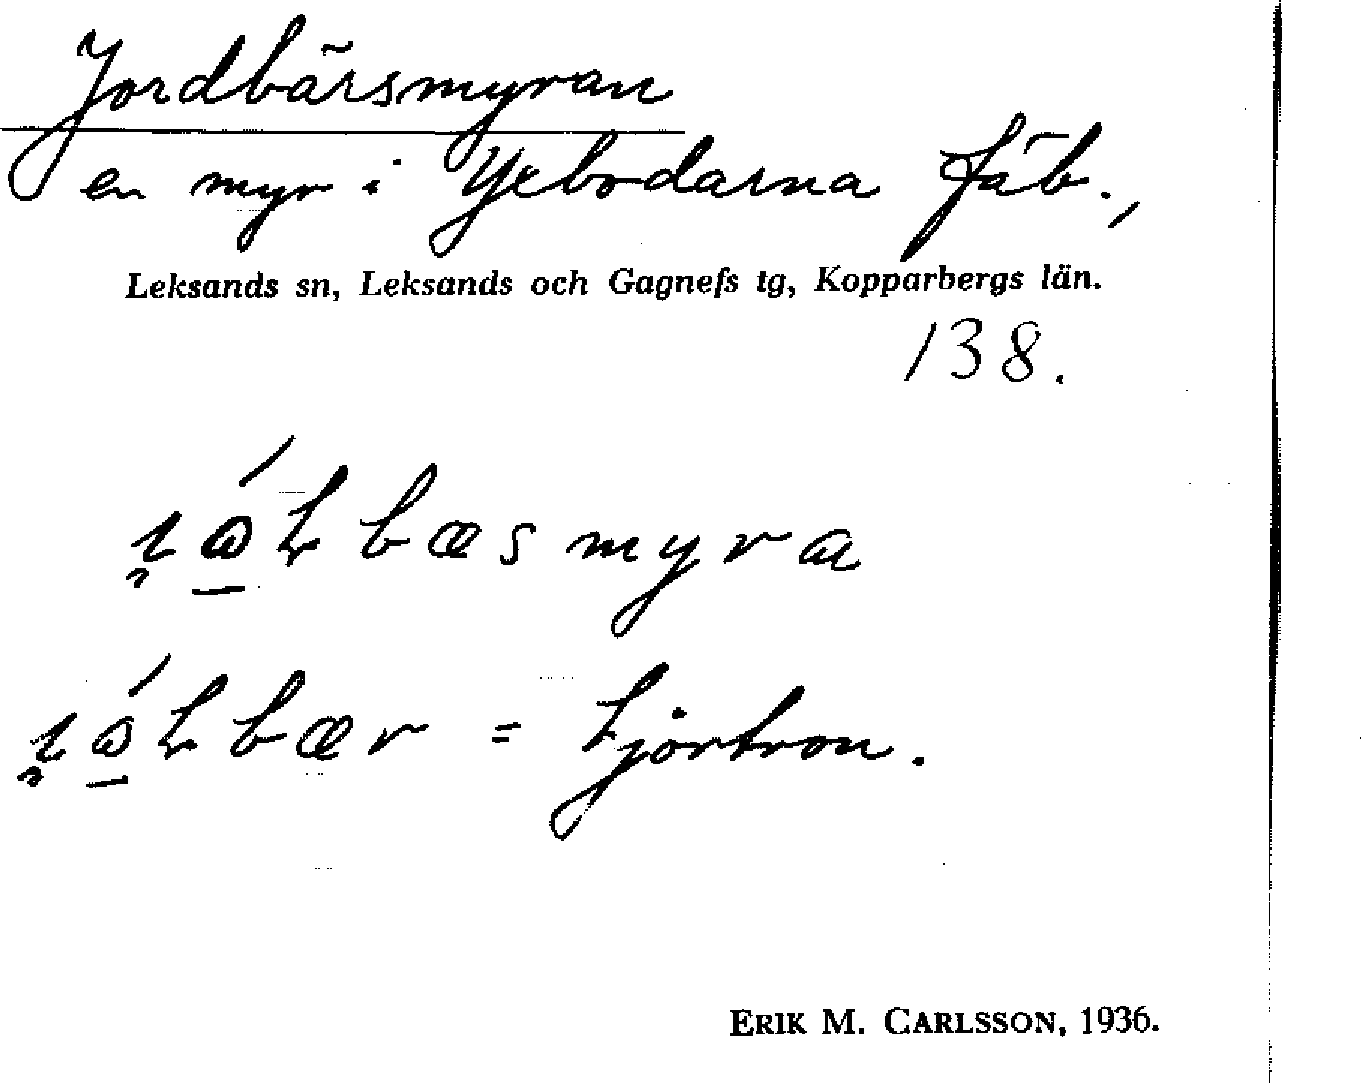 Jordbärsmyran
en myr i Yxbodarna fäb.,
Leksands sn, Leksands och Gagnefs tg, Kopparbergs län.
138.
= hjortron.
ERIK M. CARLSSON, 1936.